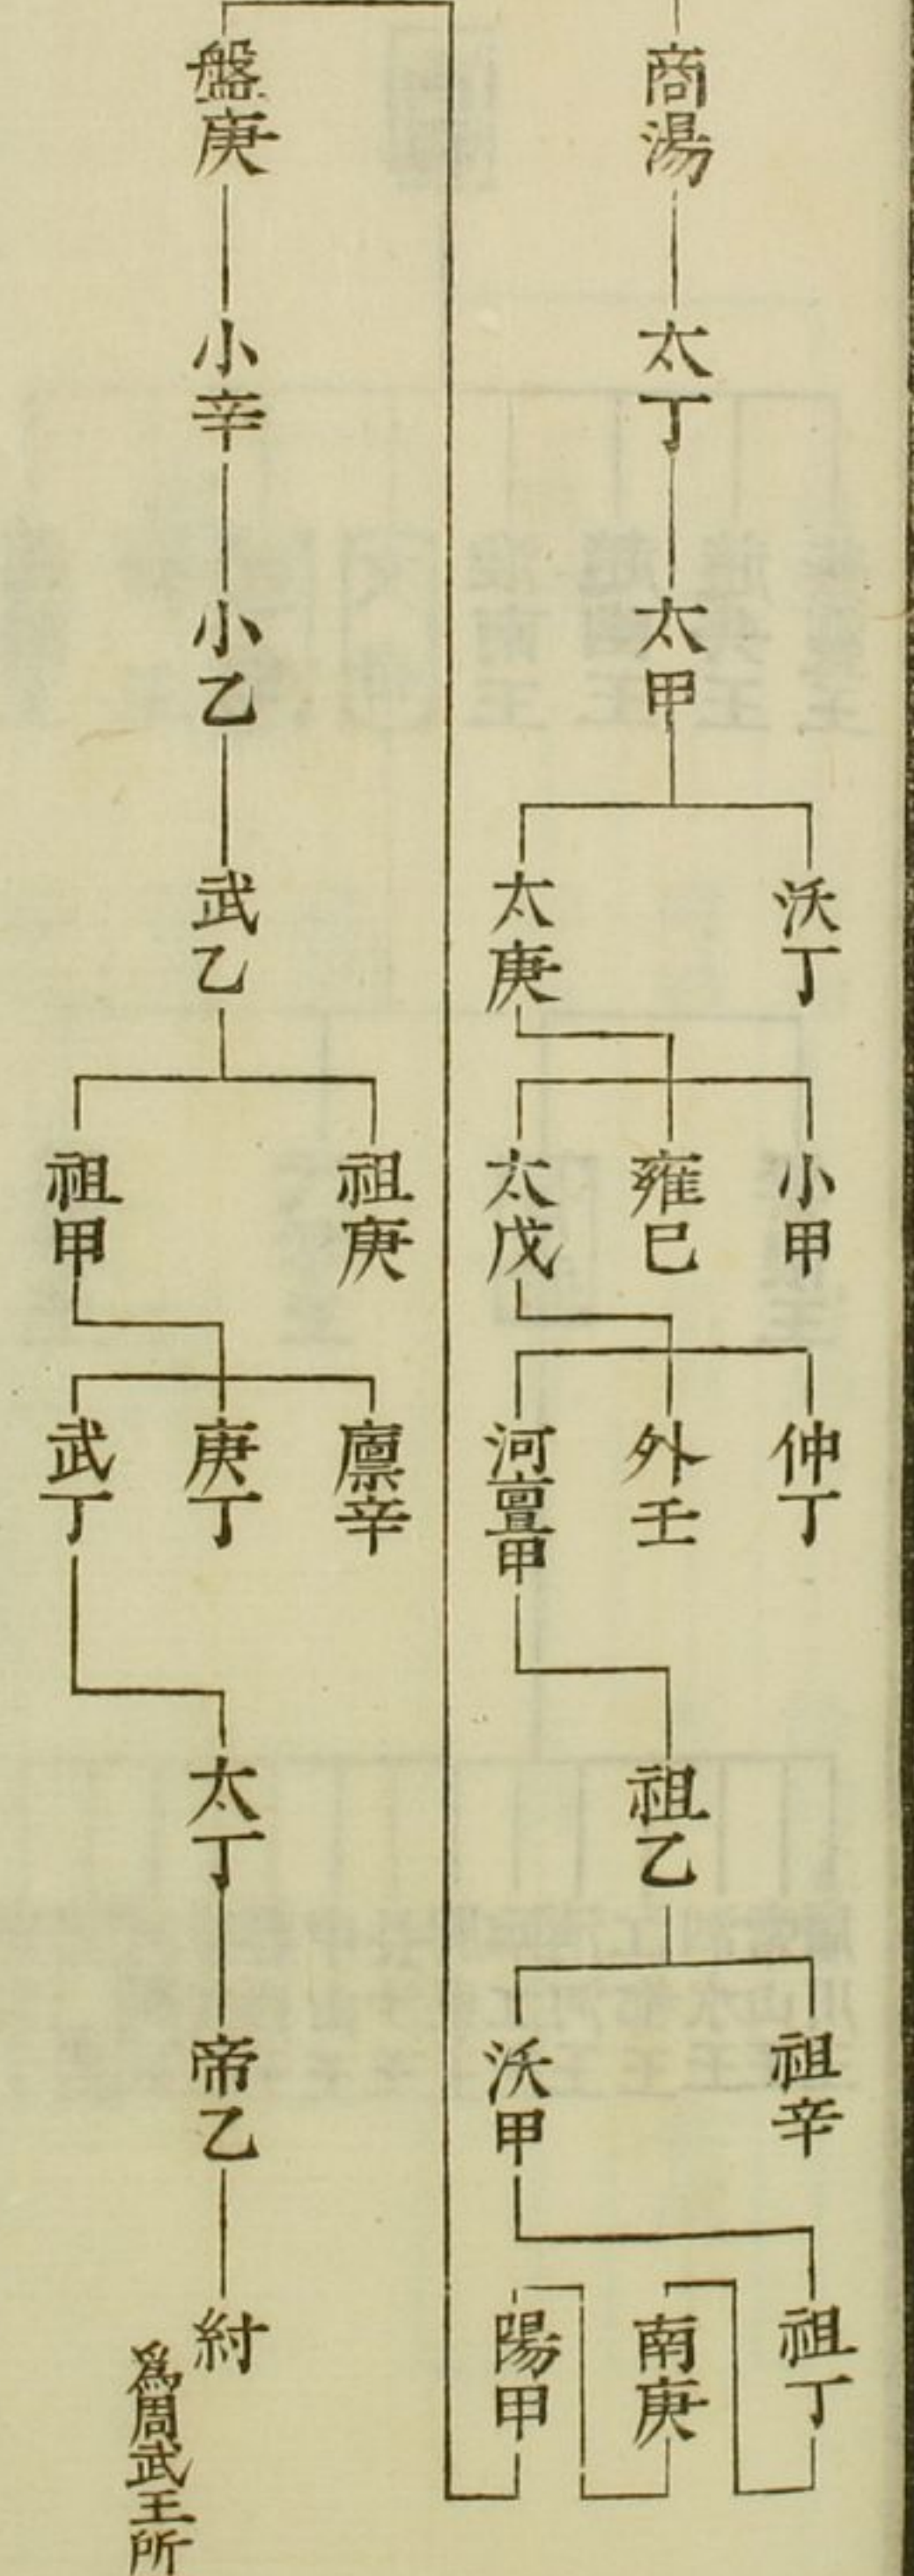 商湯
太丁
太甲
沃丁
太庚
小甲
雍巳
太戊
仲丁
外壬
河亶甲
祖乙
祖辛
沃甲
祖丁
南庚
陽甲
盤庚
小辛
小乙
武乙
祖庚
祖甲
廪辛
庚丁
武丁
太丁
帝乙
紂
爲周武王所